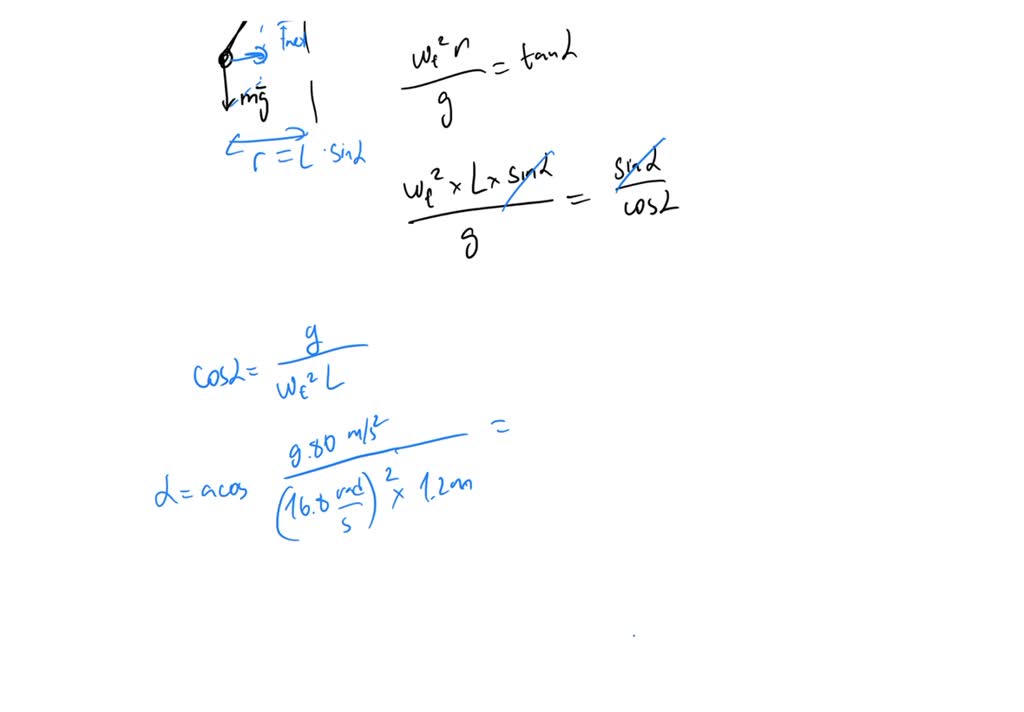 Fnet
mg
r = L · sinα
ω_f² r / g = tanα
ω_f² × L × sinα / g = sinα / cosα
cosα = g / ω_f² L
α = acos 9.80 m/s² / (16.8 rad/s)² × 1.2m =